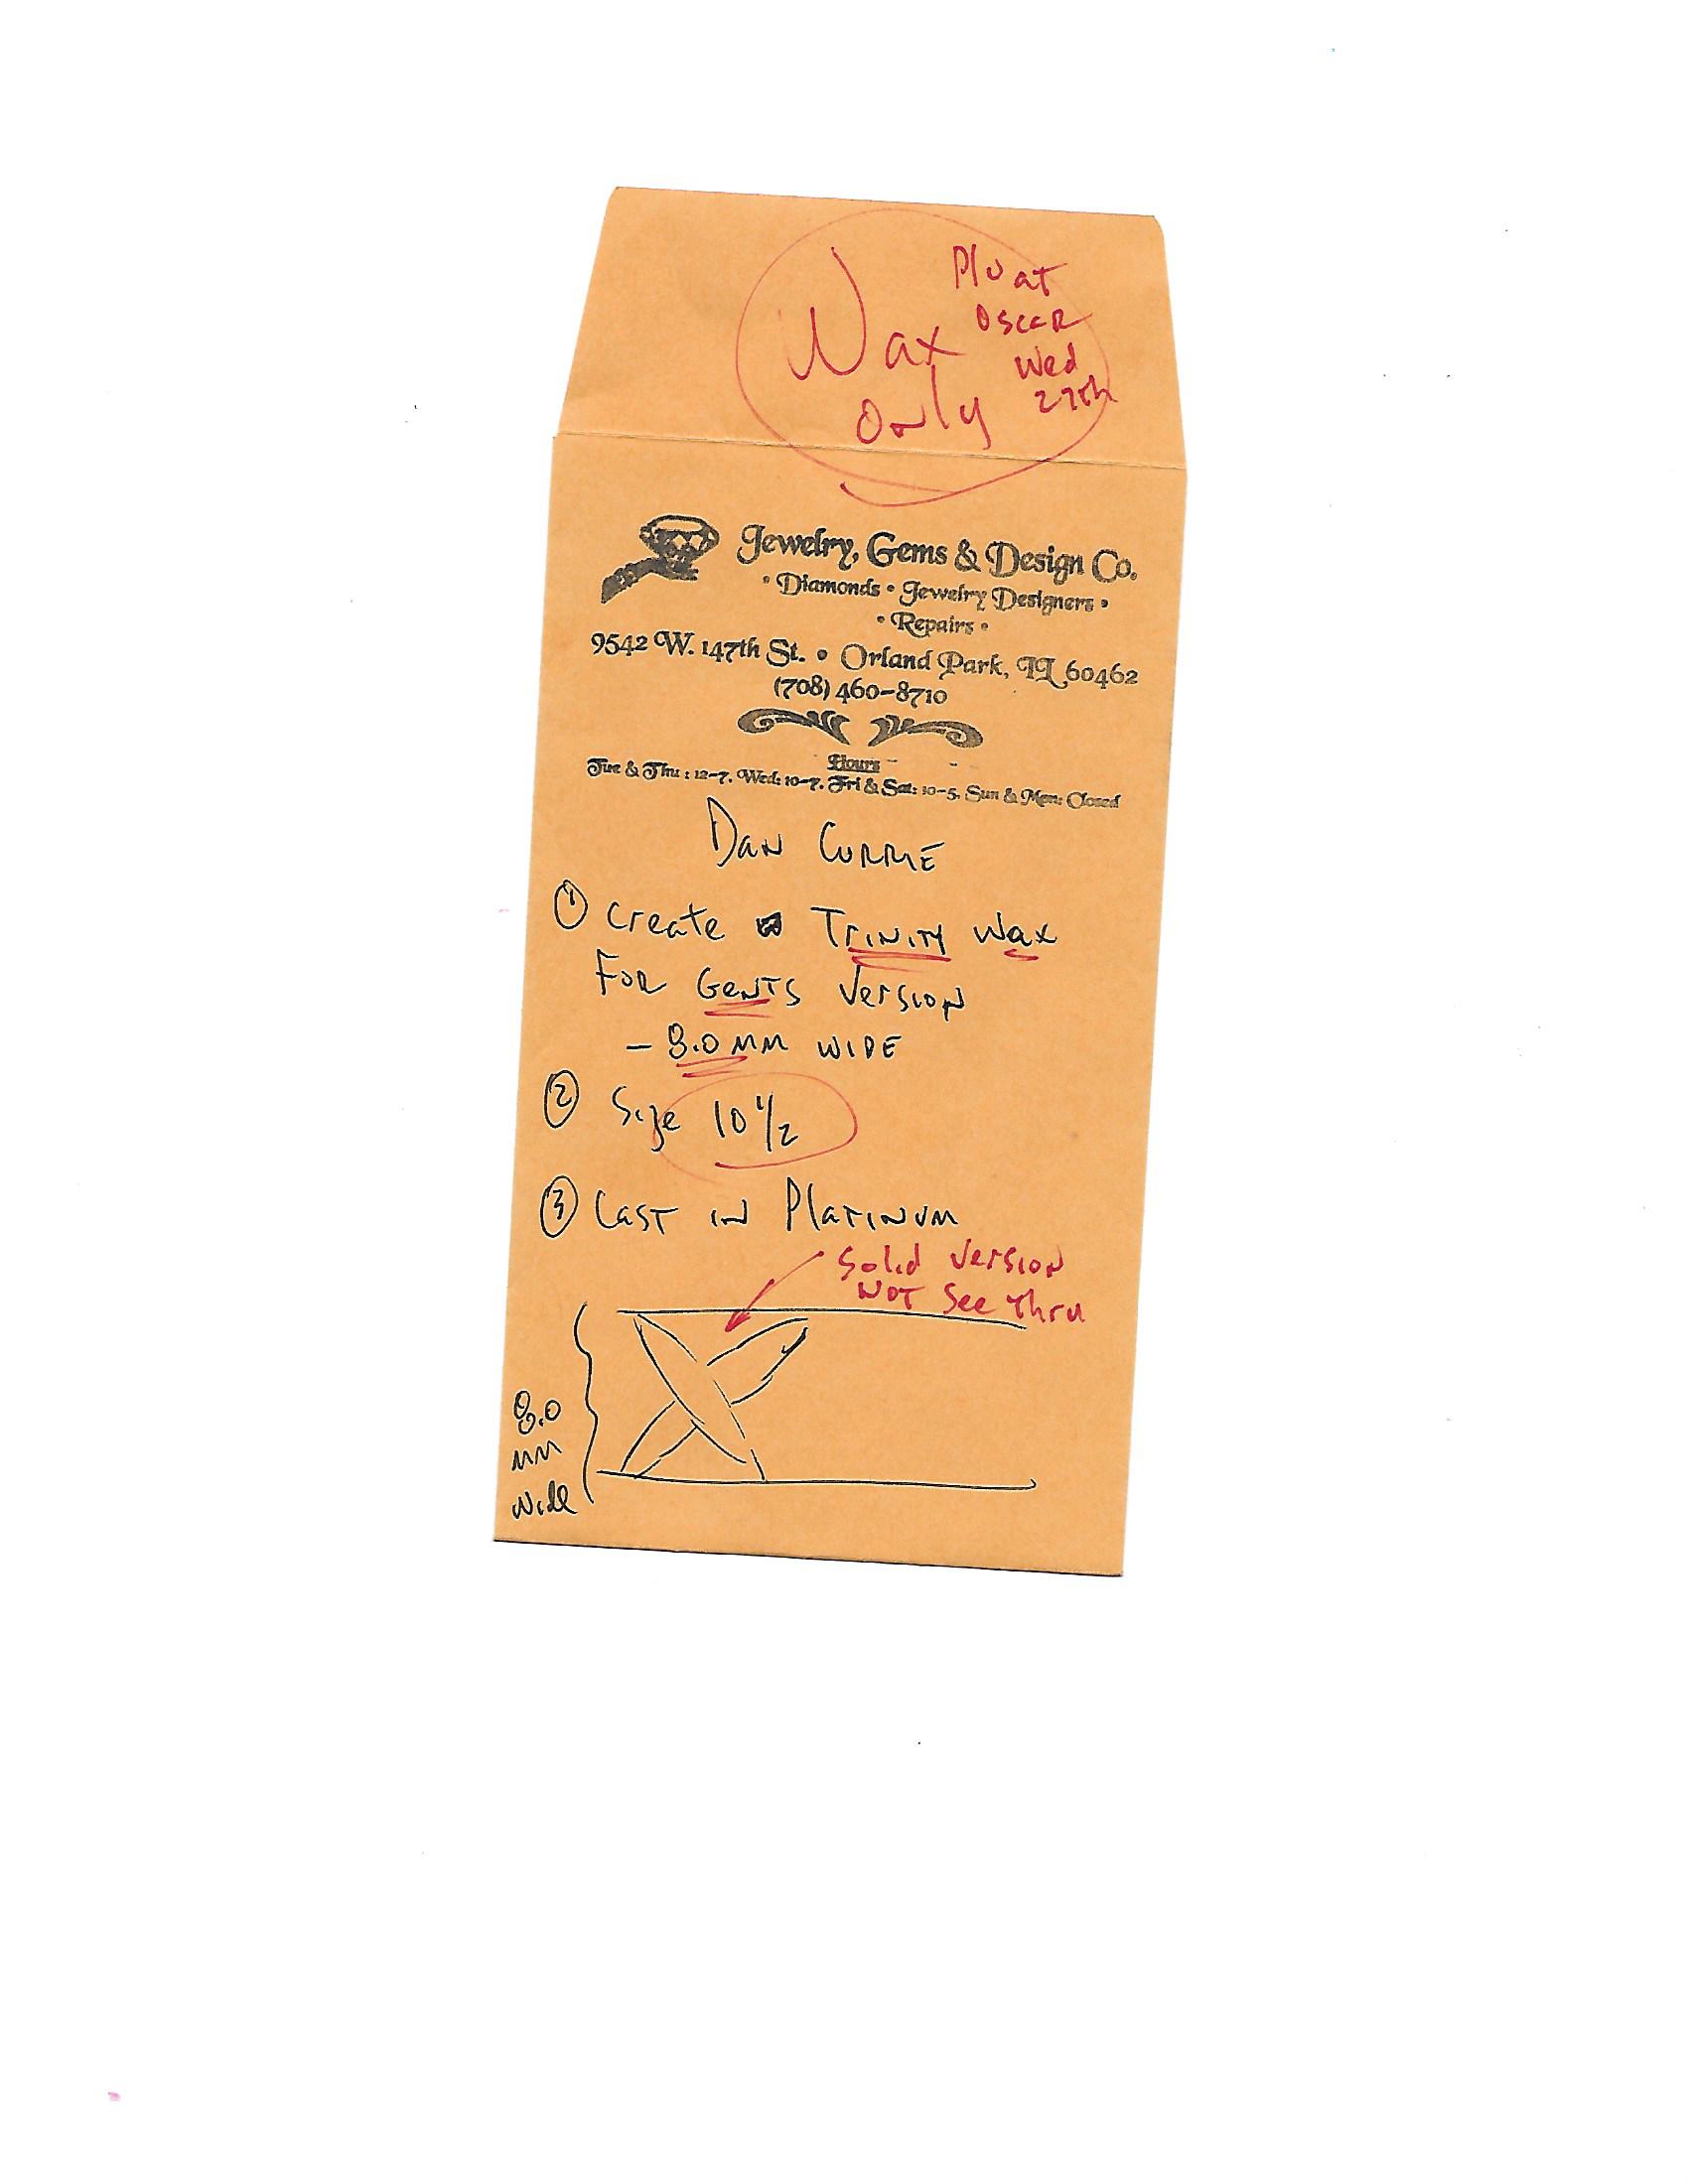 Wax
Only
P/U at
Oscar
Wed
27th
Jewelry, Gems & Design Co.
• Diamonds • Jewelry Designers •
• Repairs •
9542 W. 147th St. • Orland Park, IL 60462
(708) 460-8710
Hours
Tue & Thu: 12-7, Wed: 10-7, Fri & Sat: 10-5, Sun & Mon: Closed
Dan Currie
① Create Trinity Wax
For Gents Version
- 8.0 MM WIDE
② Size 10 1/2
③ Cast in Platinum
Solid Version
NOT See Thru
8.0
MM
Wide